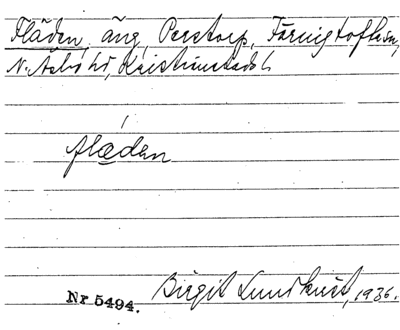 Fläden, äng, Perstorp, Färingtofta sn,
N. Åsbo hd, Kristianstads l.
flæden
Nr 5494. Birgit Lundkvist, 1936.